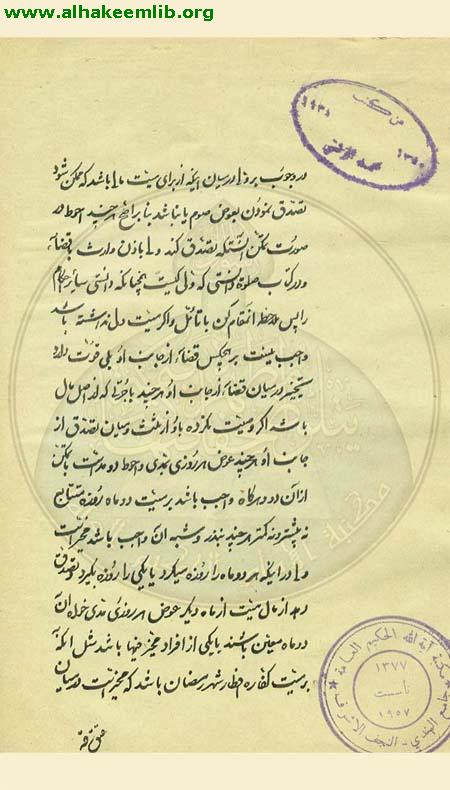 www.alhakeemlib.org
من كتب
١٩٣١
١٣٥٠
در وجوب بر و در میان اینکه از برای میت مال باشد که ممکن شود
تصدق نمودن بعوض صوم یا نباشد بنا بر اصح هر چند احوط در
صورت تمکن آنستکه تصدق کند ولی باذن وارث یا قضاء
و در کتاب صلوة دانستی که ولی کیست همچنانکه دانستی سایر احکام
را پس ملاحظه آنمقام کن با تأمل و اگر میت ولی نداشته باشد
واجب نیست بر هیچکس قضاء از جانب او بلی قوت دارد
تخییر در میان قضاء از جانب او هر چند باجرتی که از اصل مال
باشد اگر وصیت نکرده باو از ثلث و میان تصدق از
جانب او هر چند عوض هر روزی بمدی و احوط دو مد است با تمکن
از آن و هرگاه واجب باشد بر میت دو ماه روزه متتابع
نه بیشتر و نه کمتر هر چند بنذر و شبه آن واجب باشد مخیر است
ولی در اینکه هر دو ماه را روزه بگیرد یا یکی را روزه بگیرد و تصدق
دهد از مال میت از ماه دیگر عوض هر روزی مدی خواه آن
دو ماه معین باشند یا یکی از افراد مخیر فیها باشد مثل اینکه
بر میت کفاره افطار شهر رمضان باشد که مخیر است در میان
مكتبة آية الله الحكيم العامة
١٣٧٧
تأسست
١٩٥٧
جامع الهندي - النجف الاشرف